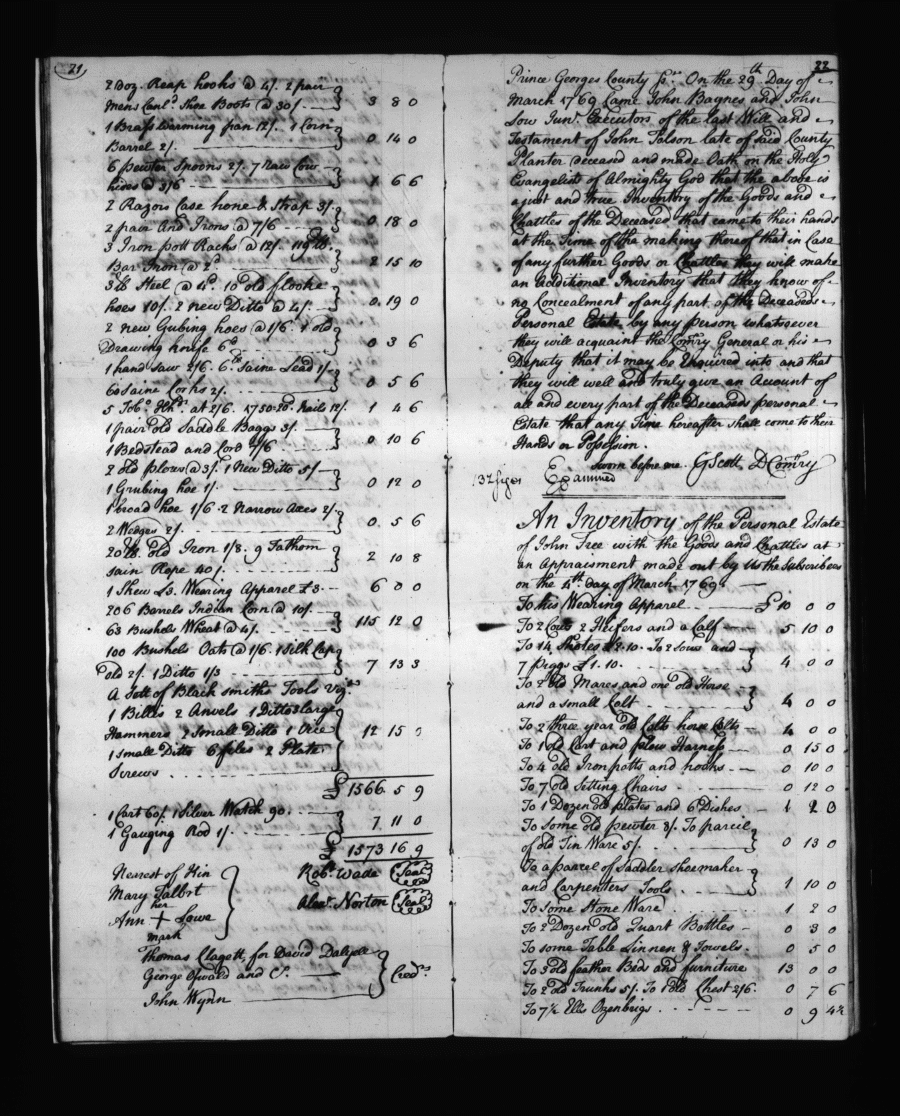 21
2 Doz. Reap hooks @ 4/. 2 pair
Mens Canl.d Shoe Boots @ 30/. 3 8 0
1 Brass Warming pan 12/. 1 Corn
Barrel 2/. 0 14 0
6 pewter Spoons 2/. 7 Raw Cow
hides @ 3/6 1 6 6
2 Razors Case hone & Strap 3/.
2 pair And Irons @ 7/6 0 18 0
3 Iron pott Racks @ 12/. 119 lb.
Bar Iron @ 2d 2 15 10
3 lb Steel @ 4d. 10 old
hoes 10/. 2 new Ditto @ 4/. 0 19 0
2 new Gubing hoes @ 1/6. 1 old
Drawing knife 6d 0 3 6
1 hand Saw 2/6. 6 lb Saine Lead 1/.
60 Saine Corks 2/. 0 5 6
5 Tob.o Hhds at 2/6. 1750 20d. Nails 12/. 1 4 6
1 pair old Saddle Baggs 3/.
1 Bedstead and Cord 7/6 0 10 6
2 old plows @ 3/. 1 New Ditto 5/
1 Grubing hoe 1/. 0 12 0
1 broad hoe 1/6. 2 Narrow Axes 2/.
2 Wedges 2/. 0 5 6
20 lb old Iron 1/8. 9 Fathom
Sain Rope 40/. 2 10 8
1 Skew £3. Wearing Apparel £3 6 0 0
206 Barrels Indian Corn @ 10/.
63 Bushels Wheat @ 4/. 115 12 0
100 Bushels Oats @ 1/6. 1 Silk Cap
old 2/. 1 Ditto 1/3 7 13 3
A Sett of Black smiths Tools Viz.t
1 Billis 2 Anvels 1 Ditto 3 large
Hammers 2 Small Ditto 1 Vice
1 small Ditto 6 files 2 Plate 12 15 0
Screws
£ 1566 5 9
1 Cart 60/. 1 Silver Watch 90.
1 Gauging Rod 1/. 7 11 0
£ 1573 16 9
Nearest of Kin Rob.t Wade Seal
Mary Talbot
her Alex.r Norton Seal
Ann + Lowe
mark
Thomas Clagett, for David Dalyell
George Oswald and Co. Cred.rs
John Wynn
22
Prince Georges County Ss. On the 29th Day of
March 1769 Came John Baynes and John
Low Junr. Executors of the last Will and
Testament of John Tolson late of said County
Planter deceased and made Oath on the Holy
Evangelist of Almighty God that the above is
a just and true Inventory of the Goods and
Chattles of the Deceased that came to their hands
at the Time of the making thereof that in Case
of any further Goods or Chattles they will make
an Additional Inventory that they know of
no Concealment of any part of the Deceaseds
Personal Estate by any person whatsoever
they will acquaint the Comry General or his
Deputy that it may be Enquired into and that
they will well and truly give an Account of
all and every part of the Deceaseds personal
Estate that any Time hereafter shall come to their
Hands or Possession.
Sworn before me. G Scott D Comry
Examined
An Inventory of the Personal Estate
of John Tree with the Goods and Chattles at
an Appraisment made out by Us the Subscribers
on the 4th day of March 1769
To his Wearing Apparel £ 10 0 0
To 2 Cows 2 Heifers and a Calf 5 10 0
To 14 Shotes £2.10. To 2 Sows and
7 piggs £1.10. 4 0 0
To 2 old Mares and one old Horse
and a small Colt 4 0 0
To 2 three year old Colts horse Colts 4 0 0
To 1 old Cart and plow Harness 0 15 0
To 4 old Iron potts and hooks 0 10 0
To 7 old Sitting Chairs 0 12 0
To 1 Dozen old plates and 6 Dishes 1 2 0
To some old pewter 8/. To parcel
of old Tin Ware 5/. 0 13 0
To a parcel of Saddler Shoemaker
and Carpenters Tools 1 10 0
To some Stone Ware 1 2 0
To 2 Dozen old Quart Bottles 0 3 0
To some Table Linnen & Towels 0 5 0
To 3 old feather Beds and furniture 13 0 0
To 2 old Trunks 5/. To 1 old Chest 2/6. 0 7 6
To 7½ Ells Ozenbrigs 0 9 4½